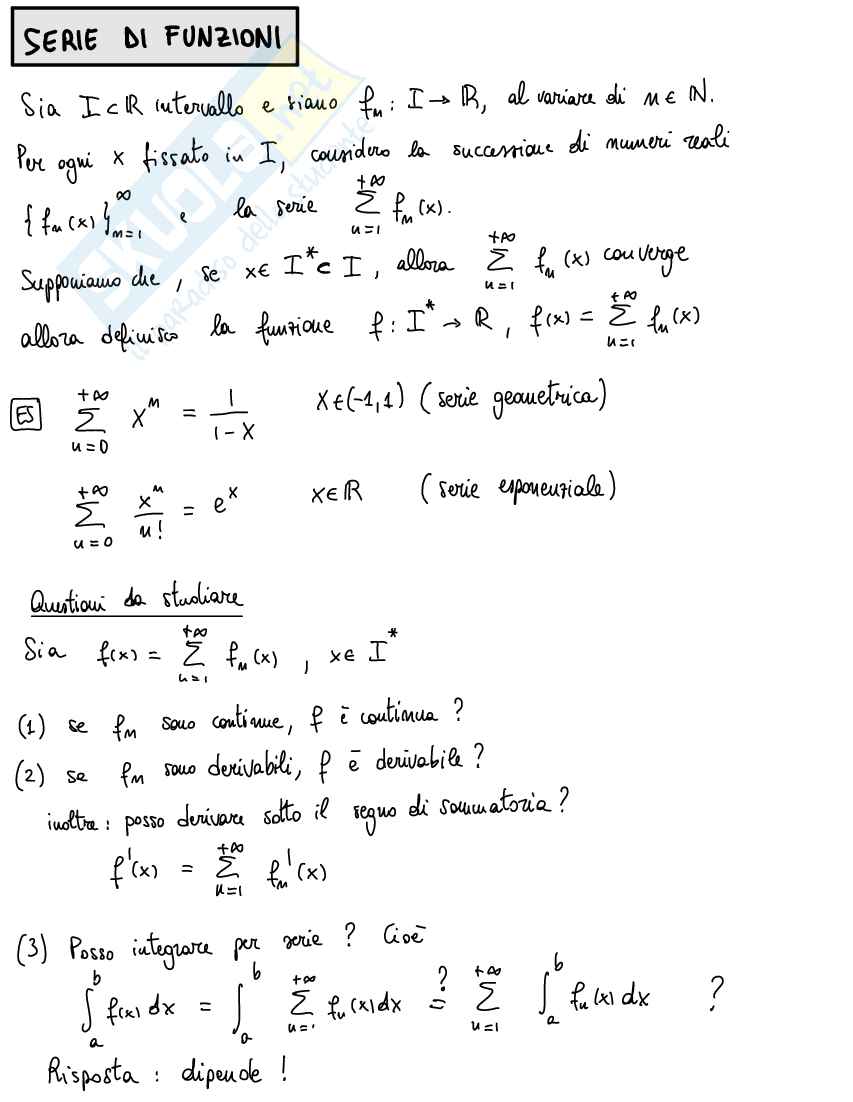 SERIE DI FUNZIONI
Sia I⊂ℝ intervallo e siano fₙ: I→ℝ, al variare di n∈ℕ.
Per ogni x fissato in I, considero la successione di numeri reali
{fₙ(x)}_{n=1}^{∞} e la serie ∑_{n=1}^{+∞} fₙ(x).
Supponiamo che, se x∈ I*⊂ I, allora ∑_{n=1}^{+∞} fₙ(x) converge
allora definisco la funzione f: I*→ℝ, f(x) = ∑_{n=1}^{+∞} fₙ(x)
ES ∑_{n=0}^{+∞} xⁿ = 1/(1-x) x∈(-1,1) (serie geometrica)
∑_{n=0}^{+∞} xⁿ/n! = eˣ x∈ℝ (serie esponenziale)
Questioni da studiare
Sia f(x) = ∑_{n=1}^{+∞} fₙ(x), x∈ I*
(1) se fₙ sono continue, f è continua?
(2) se fₙ sono derivabili, f è derivabile?
inoltre: posso derivare sotto il segno di sommatoria?
f'(x) = ∑_{n=1}^{+∞} fₙ'(x)
(3) Posso integrare per serie? Cioè
∫_a^b f(x) dx = ∫_a^b ∑_{n=1}^{+∞} fₙ(x) dx =? ∑_{n=1}^{+∞} ∫_a^b fₙ(x) dx ?
Risposta: dipende!
SKUOLA.net
il paradiso dello studente